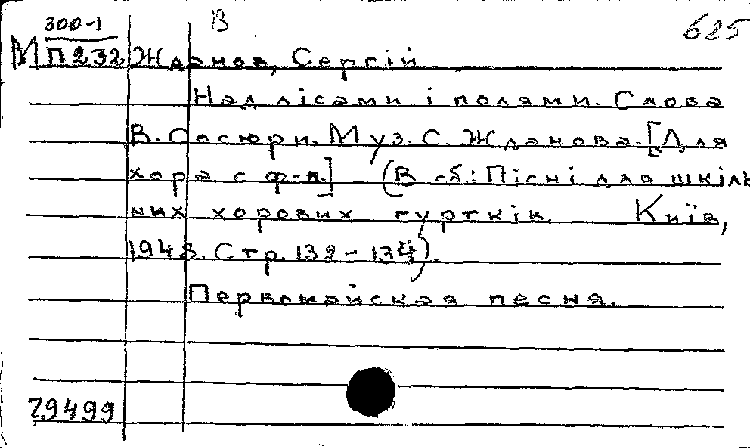 300-1 В 625
М П232 Жданов, Сергій
Над лісами і полями. Слова
В. Сосюри. Муз. С. Жданова. [Для
хора с ф-п.] (В сб.: Пісні для шкіль
них хорових гуртків. Київ,
1948. Стр. 132-134).
Первомайская песня.
79499